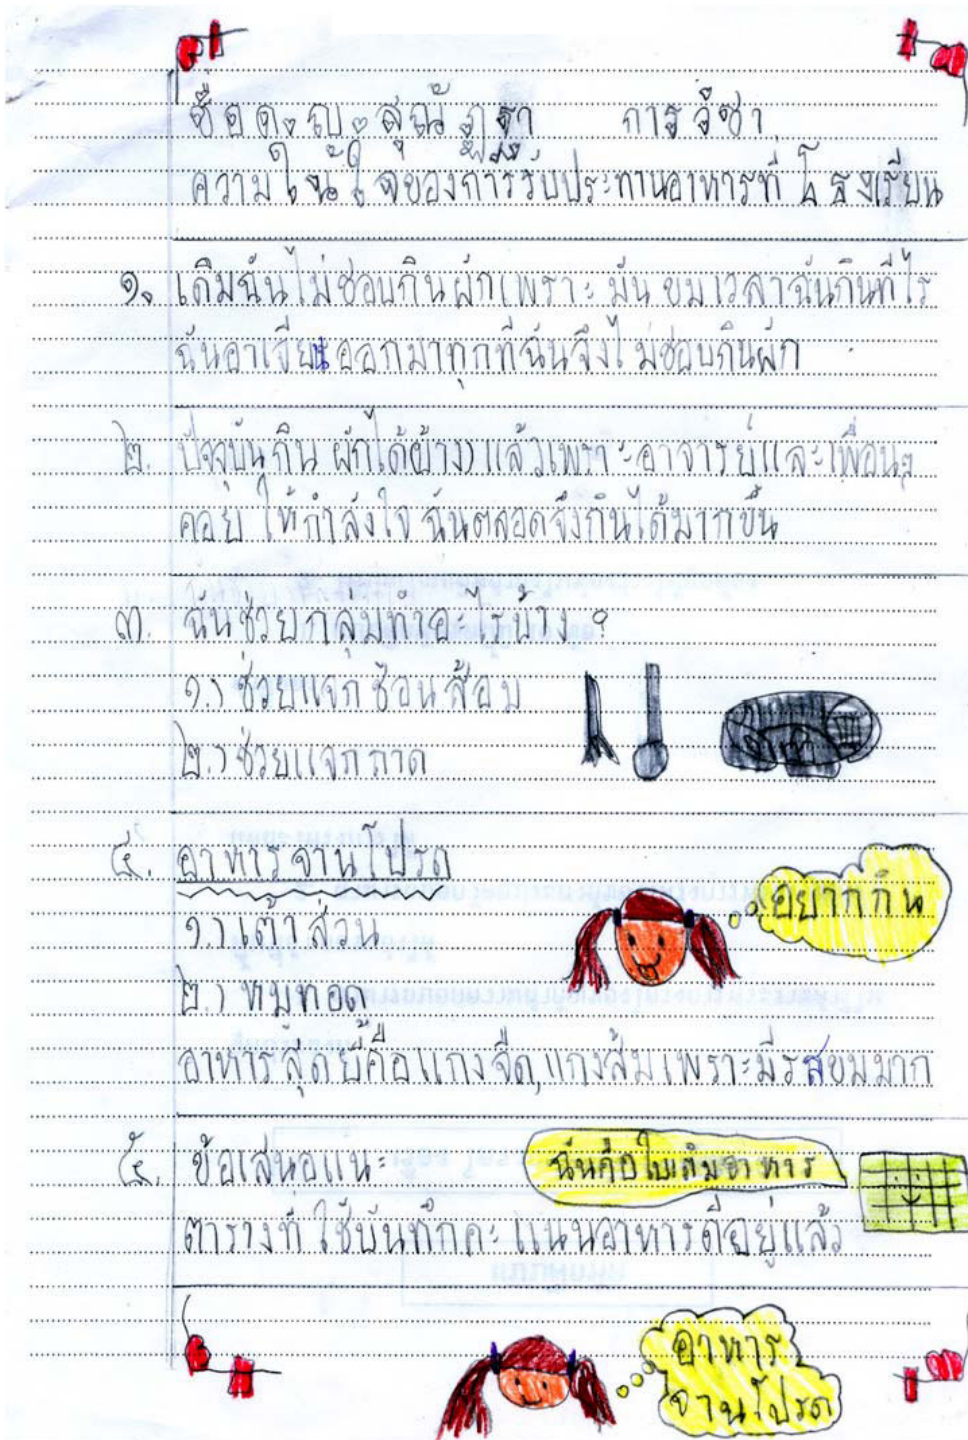 ชื่อ ด.ญ. สุณัฏฐา การวิชา
ความในใจของการรับประทานอาหารที่โรงเรียน
๑. เดิมฉันไม่ชอบกินผักเพราะมันขมเวลาฉันกินทีไร
ฉันอาเจียนออกมาทุกทีฉันจึงไม่ชอบกินผัก
๒. ปัจจุบันกินผักได้บ้างแล้วเพราะอาจารย์และเพื่อนๆ
คอยให้กำลังใจฉันตลอดจึงกินได้มากขึ้น
๓. ฉันช่วยกลุ่มทำอะไรบ้าง ?
๑.) ช่วยแจกช้อนส้อม
๒.) ช่วยแจกถาด
ถาด
๔. อาหารจานโปรด
อยากกิน
๑.) เต้าส่วน
๒.) หมูทอด
อาหารสุดยี้คือแกงจืด,แกงส้มเพราะมีรสขมมาก
๕. ข้อเสนอแนะ
ฉันคือใบเติมอาหาร
ตารางที่ใช้บันทึกคะแนนอาหารดีอยู่แล้ว
อาหาร
จานโปรด